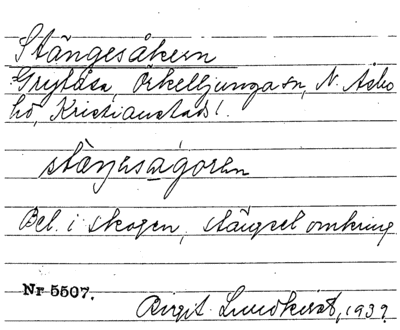 Stängesåkern
Grytåsa, Örkelljunga sn, N. Åsbo
hd, Kristianstads l.
Bel. i skogen, stängsel omkring
Nr 5507.
Birgit Lundkvist, 1939.